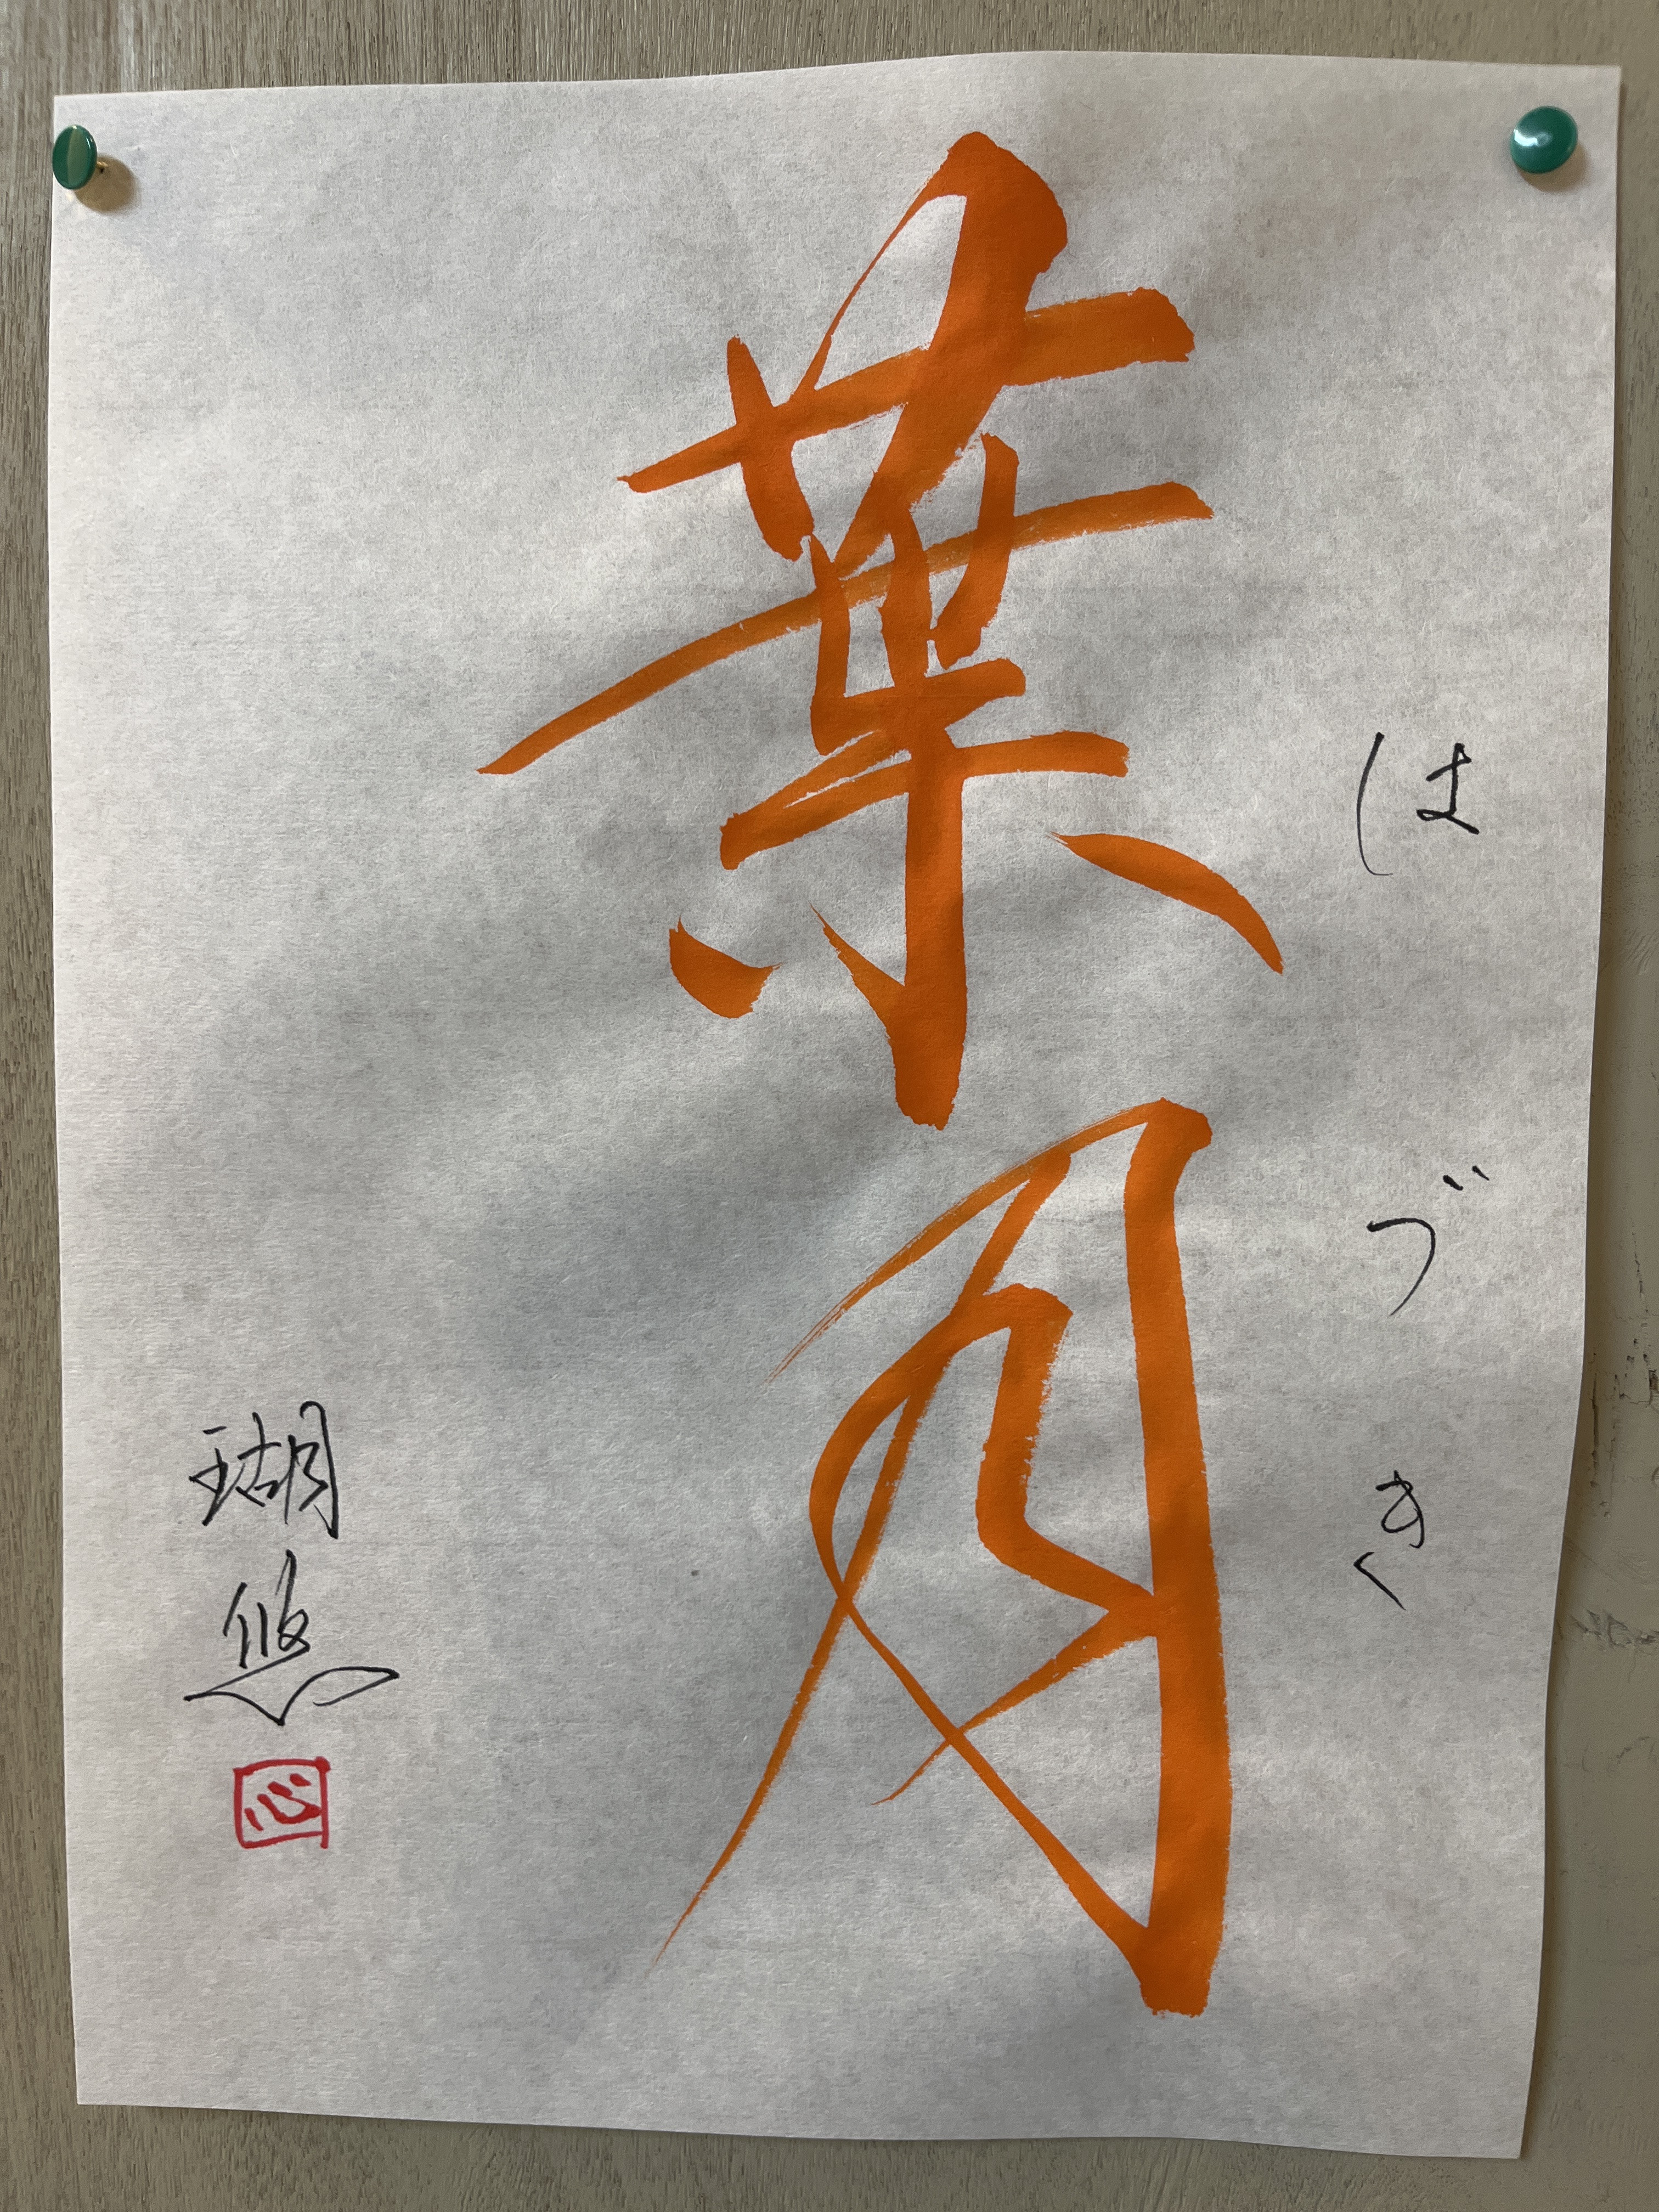 はづき
葉月
瑚悠
心